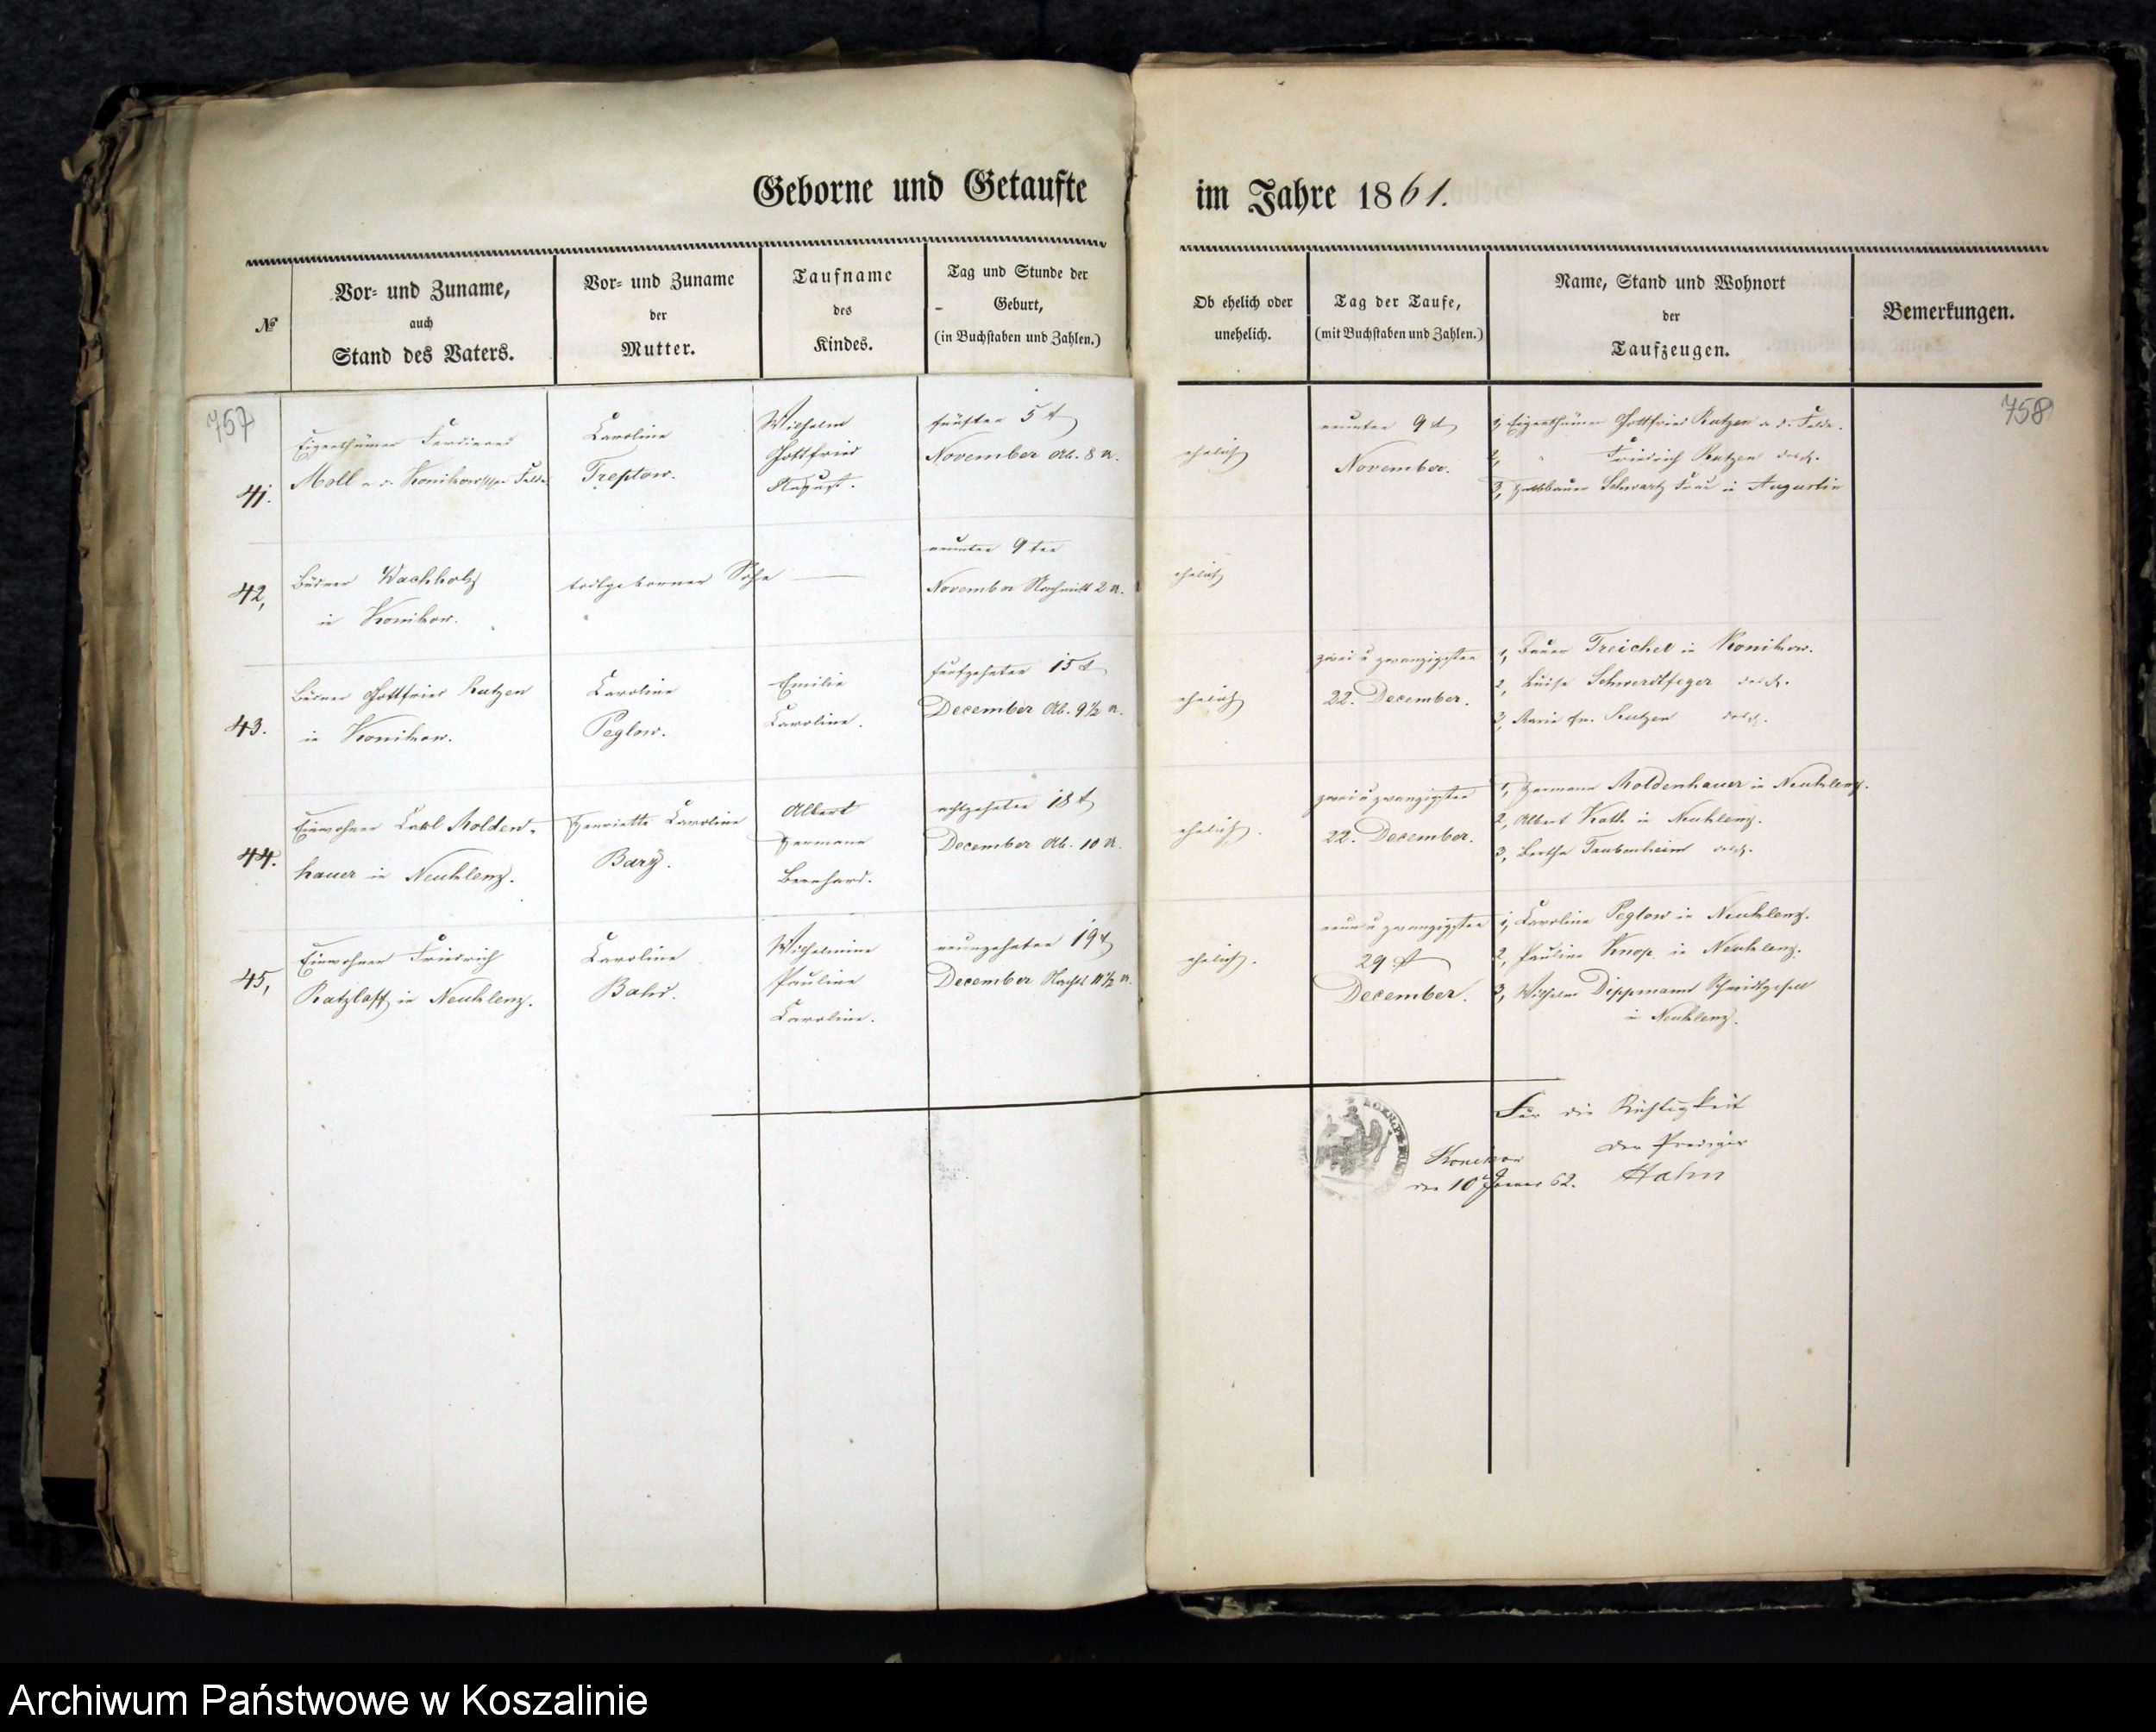 Geborne und Getaufte
im Jahre 1861.
№
Vor- und Zuname,
auch
Stand des Vaters.
Vor- und Zuname
der
Mutter.
Taufname
des
Kindes.
Tag und Stunde der
Geburt,
(in Buchstaben und Zahlen.)
Ob ehelich oder
unehelich.
Tag der Taufe,
(mit Buchstaben und Zahlen.)
Name, Stand und Wohnort
der
Taufzeugen.
Bemerkungen.
757
758
41.
Eigenthümer Ferdinand
Moll a. d. Konikowschen Felde
Caroline
Treptow.
Wilhelm
Gottfried
August.
fünften 5 t
November Ab. 8 U.
ehelich
neunten 9 t
November.
1, Eigenthümer Gottfried Rutzen a. d. Felde.
2, " Friedrich Rutzen das.
3, Halbbauer Schwartz Frau in Augustin
42,
Büdner Wachholz
in Konikow.
todtgeborner Sohn
neunten 9 ten
November Nachmitt 2 U.
ehelich
43.
Büdner Gottfried Rutzen
in Konikow.
Caroline
Peglow.
Emilie
Caroline.
funfzehnten 15 t
December Ab. 9½ U.
ehelich
zwei u zwanzigsten
22. December.
1, Bauer Treichel in Konikow.
2, Luise Schwerdtfeger
3, Marie Rutzen
44.
Einwohner Carl Molden-
hauer in Neuklenz.
Henriette Caroline
Bary.
Albert
Hermann
Bernhard.
achtzehnten 18 t
December Ab. 10 U.
ehelich.
zwei u zwanzigsten
22. December.
1, Hermann Moldenhauer in Neuklenz.
2, Albert Kath in Neuklenz.
3, Berthe Taubenheim
45,
Einwohner Friedrich
Ratzlaff in Neuklenz.
Caroline
Wilhelmine
Pauline
Caroline.
neunzehnten 19 t
December Nachts 11½ U.
ehelich.
neun u zwanzigsten
29 st
December.
1, Caroline Peglow in Neuklenz.
2, Pauline Knop in Neuklenz.
3, Wilhelm Dippmann
in Neuklenz.
Für die Richtigkeit
der Prediger
Hahn
Konikow
den 10 Januar 62.
Archiwum Państwowe w Koszalinie